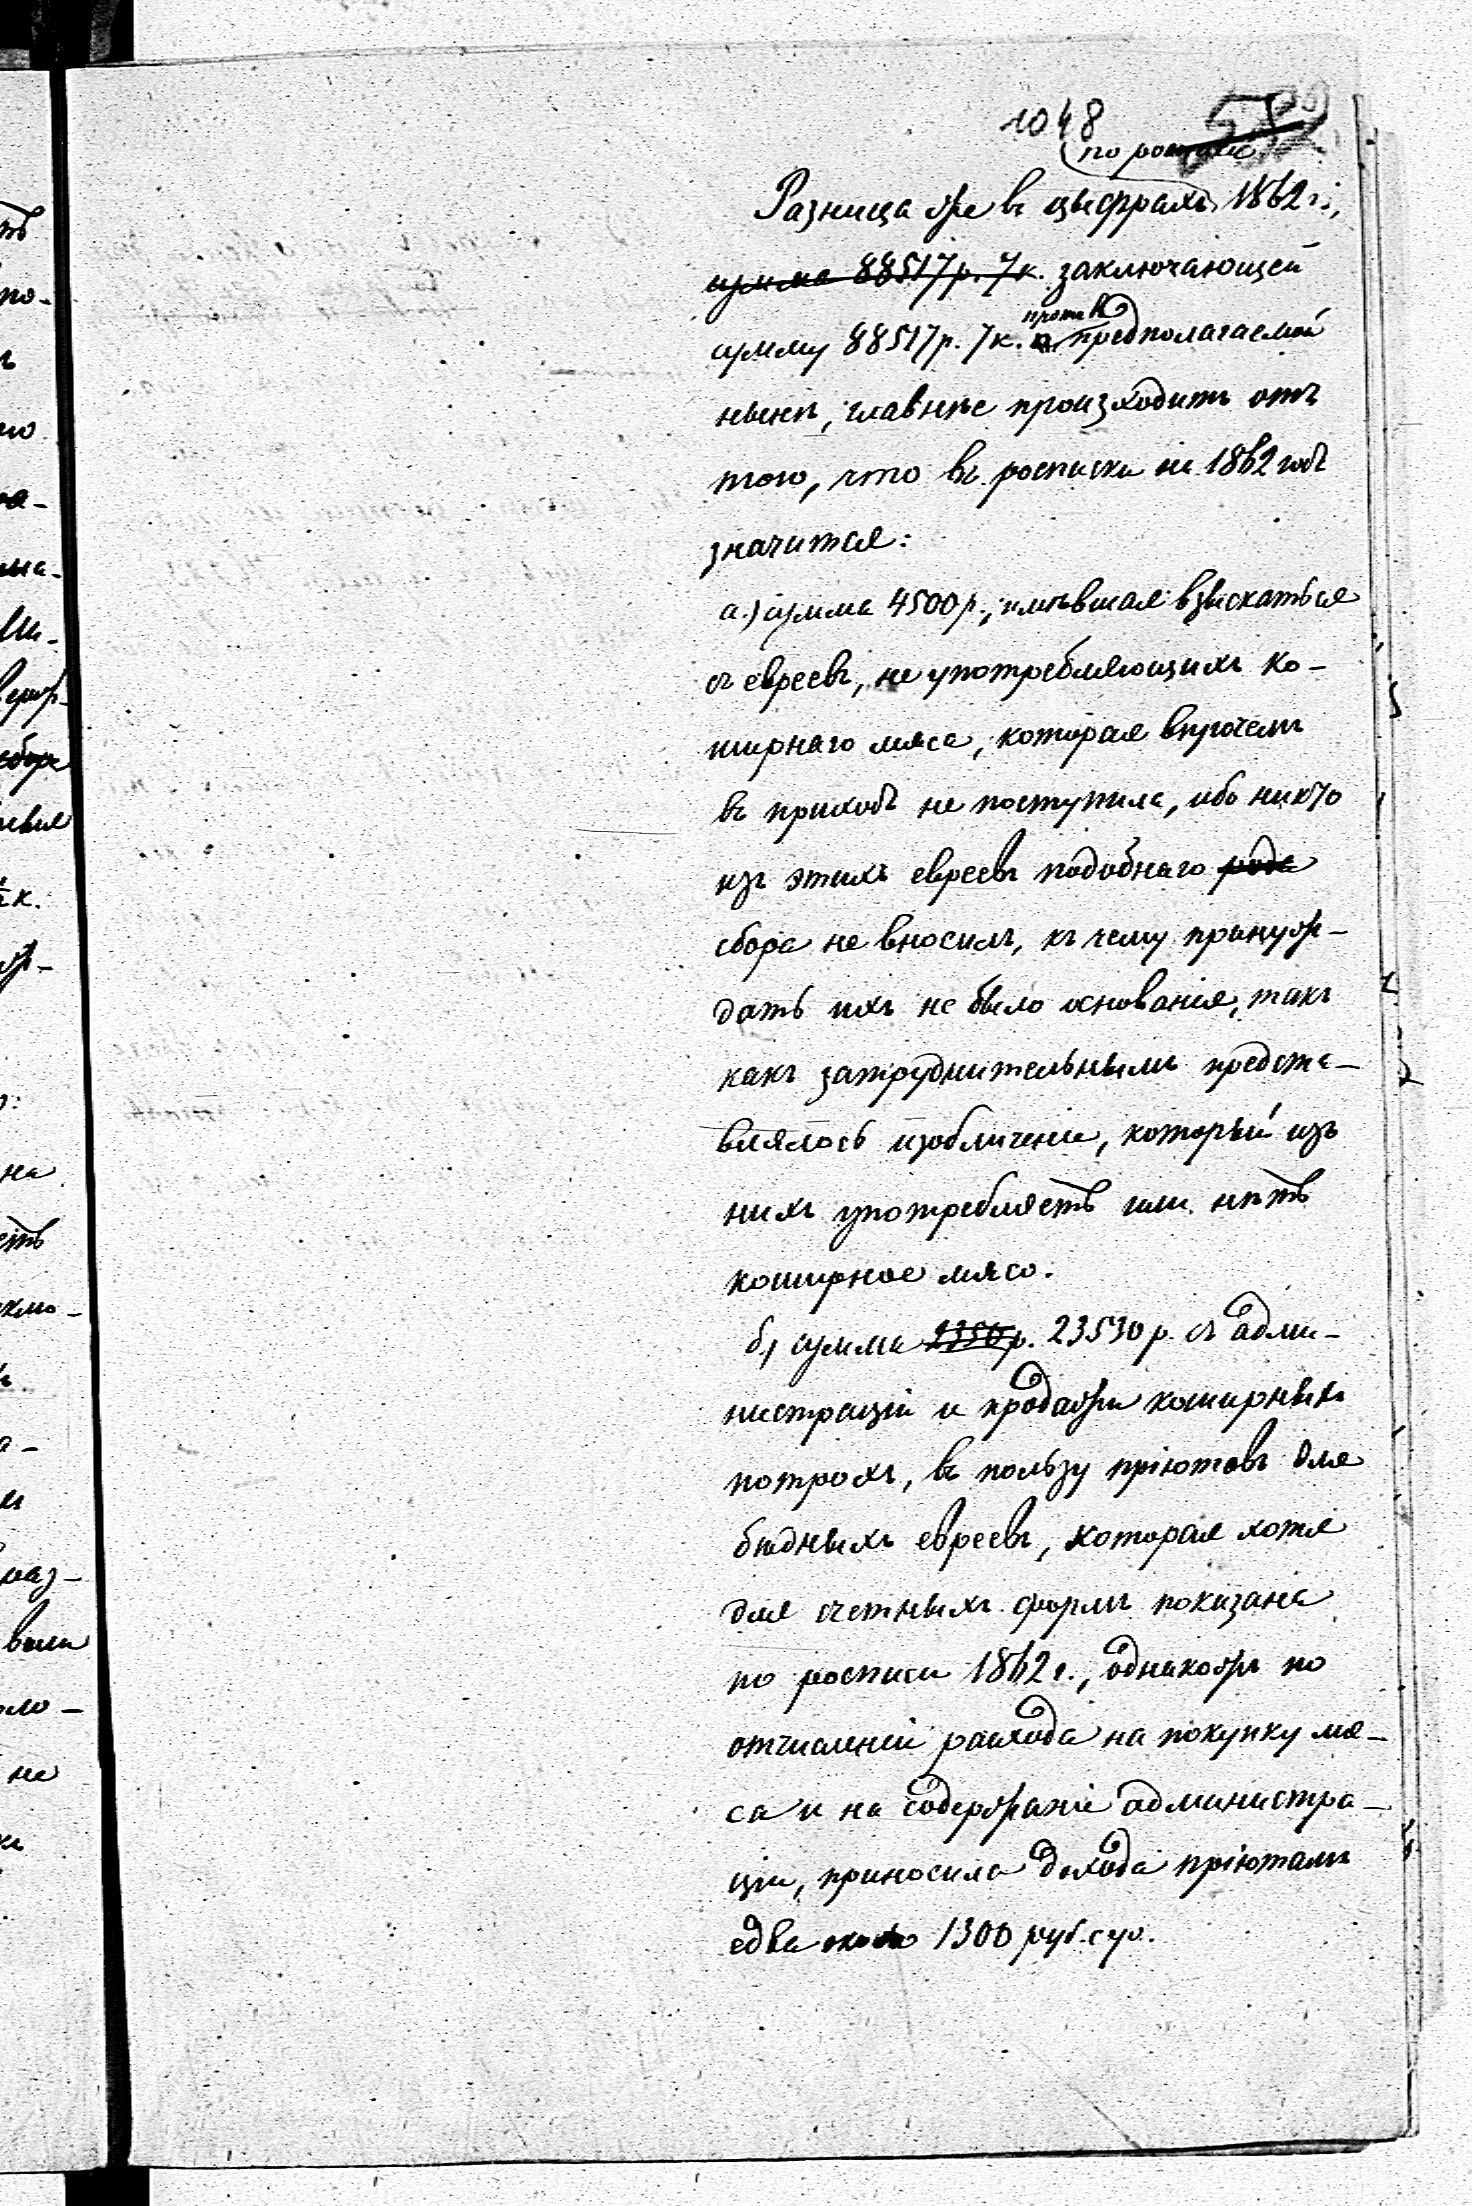 1048
по росписи
Разница же въ цыфрахъ 1862 г.,
сумма 88517 р. 7 к. заключающей
противъ
сумму 88517 р. 7 к. предполагаемой
нынѣ, главнѣе произходитъ отъ
того, что въ росписки на 1862 годъ
значится:
а.) сумма 4500 р., имѣвшая взыскаться
съ евреевъ, не употребляющихъ ко-
ширнаго мяса, которая впрочемъ
въ приходъ не поступила, ибо никто
изъ этихъ евреевъ подобнаго рода
сбора не вносилъ, къ чему принуж-
дать ихъ не было основанія, такъ
какъ затруднительнымъ предста-
влялось изобличеніе, который изъ
нихъ употребляетъ или нѣтъ
коширное мясо.
б) сумма 2350 р. 23530 р. съ адми-
нистраціи и продажи коширныхъ
потрохъ, въ пользу пріютовъ для
бѣдныхъ евреевъ, которая хотя
для счетныхъ формъ показана
по росписи 1862 г., однакожъ по
отчисленіи расхода на покупку мя-
са и на содержаніе администра-
ціи, приносила дохода пріютамъ
едва около 1300 руб. сер.